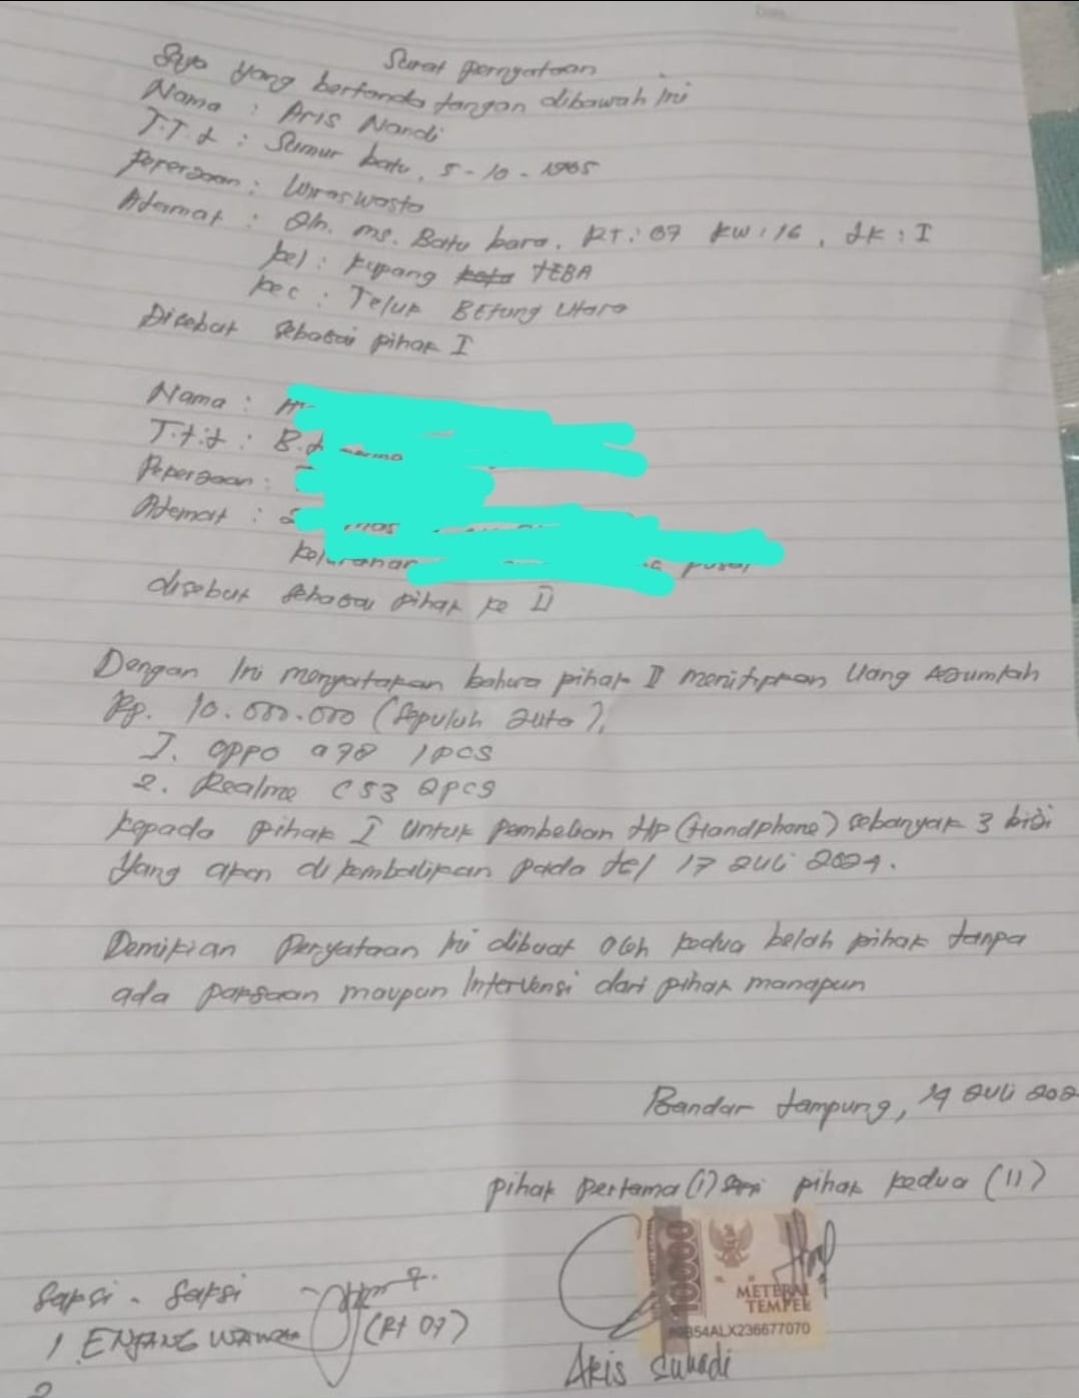 Surat pernyataan
Saya yang bertanda tangan dibawah ini
Nama : Aris Nandi
T.T.L : Sumur batu, 5-10-1965
Pekerjaan : Wiraswasta
Alamat : Jln. ms. Batu bara. RT : 07 RW : 16, LK : I
kel : Kupang TEBA
kec : Teluk BEtung Utara
Disebut sebagai pihak I
Nama :
T.t.L : B.
Pekerjaan :
Alamat :
disebut sebagai pihak ke II
Dengan Ini menyatakan bahwa pihak II menitipkan Uang Sejumlah
Rp. 10.000.000 (Sepuluh Juta),
1. OPPO a78 1 pcs
2. Realme C53 2pcs
kepada pihak I untuk pembelian Hp (Handphone) sebanyak 3 biji
Yang akan di kembalikan pada tgl 17 Juli 2024.
Demikian Peryataan Ini dibuat oleh kedua belah pihak tanpa
ada paksaan maupun Intervensi dari pihak manapun
Bandar Lampung, 14 Juli 202
pihak pertama (I) pihak kedua (II)
10000
METERAI
TEMPEL
54ALX236677070
Saksi - Saksi
1 ENJANG WAWAN (Rt 07)
Aris Suhadi
2